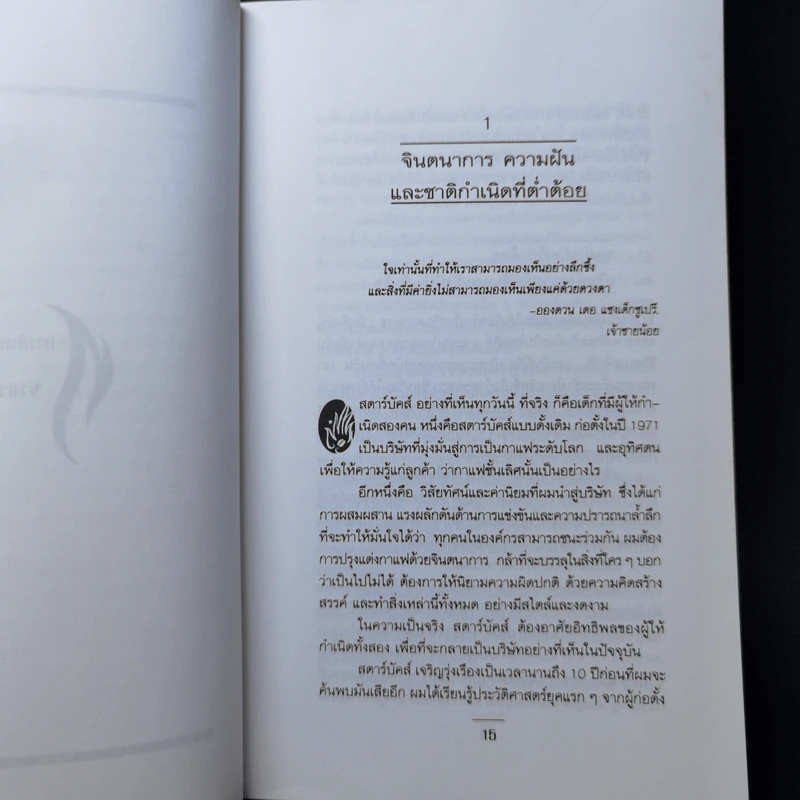 1
จินตนาการ ความฝัน
และชาติกำเนิดที่ต่ำต้อย
ใจเท่านั้นที่ทำให้เราสามารถมองเห็นอย่างลึกซึ้ง
และสิ่งที่มีค่ายิ่งไม่สามารถมองเห็นเพียงแค่ด้วยดวงตา
–อองตวน เดอ แซงเต็กซูเปรี.
เจ้าชายน้อย
สตาร์บัคส์ อย่างที่เห็นทุกวันนี้ ที่จริง ก็คือเด็กที่มีผู้ให้กำ-
เนิดสองคน หนึ่งคือสตาร์บัคส์แบบดั้งเดิม ก่อตั้งในปี 1971
เป็นบริษัทที่มุ่งมั่นสู่การเป็นกาแฟระดับโลก และอุทิศตน
เพื่อให้ความรู้แก่ลูกค้า ว่ากาแฟชั้นเลิศนั้นเป็นอย่างไร
อีกหนึ่งคือ วิสัยทัศน์และค่านิยมที่ผมนำสู่บริษัท ซึ่งได้แก่
การผสมผสาน แรงผลักดันด้านการแข่งขันและความปรารถนาล้ำลึก
ที่จะทำให้มั่นใจได้ว่า ทุกคนในองค์กรสามารถชนะร่วมกัน ผมต้อง
การปรุงแต่งกาแฟด้วยจินตนาการ กล้าที่จะบรรลุในสิ่งที่ใคร ๆ บอก
ว่าเป็นไปไม่ได้ ต้องการให้นิยามความผิดปกติ ด้วยความคิดสร้าง
สรรค์ และทำสิ่งเหล่านี้ทั้งหมด อย่างมีสไตล์และงดงาม
ในความเป็นจริง สตาร์บัคส์ ต้องอาศัยอิทธิพลของผู้ให้
กำเนิดทั้งสอง เพื่อที่จะกลายเป็นบริษัทอย่างที่เห็นในปัจจุบัน
สตาร์บัคส์ เจริญรุ่งเรืองเป็นเวลานานถึง 10 ปีก่อนที่ผมจะ
ค้นพบมันเสียอีก ผมได้เรียนรู้ประวัติศาสตร์ยุคแรก ๆ จากผู้ก่อตั้ง
15